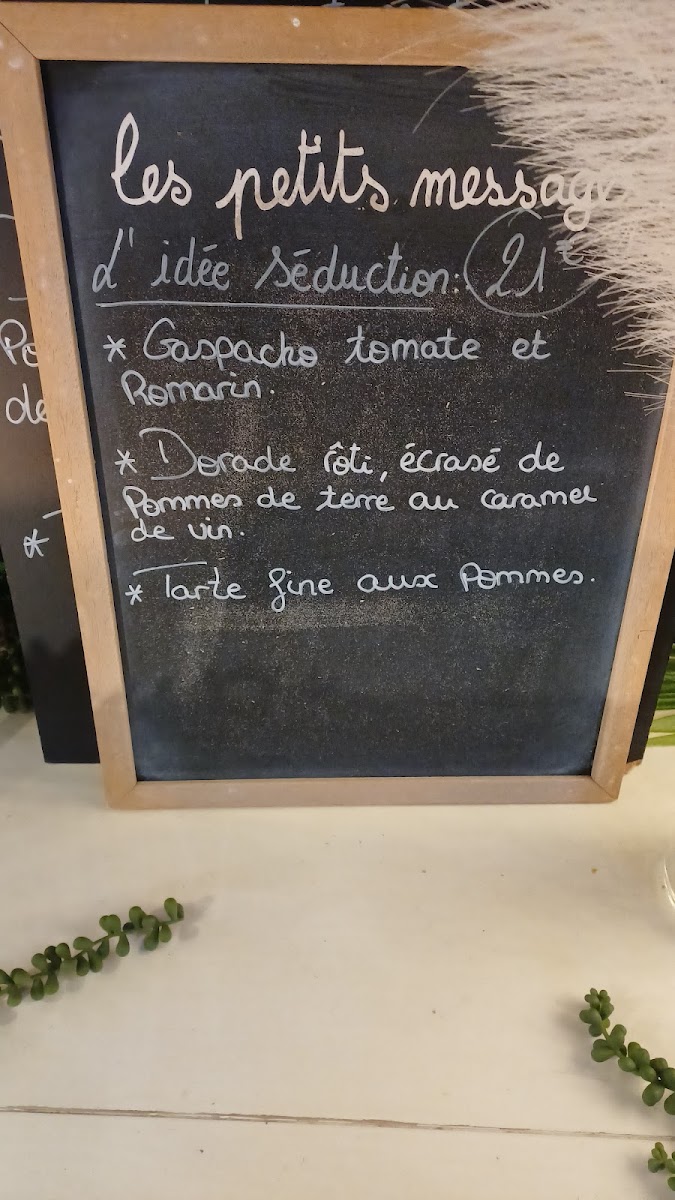 les petits messag
L'idée séduction: 21€
* Gaspacho tomate et
Romarin.
* Dorade rôti, écrasé de
Pommes de terre au caramel
de vin.
* Tarte fine aux Pommes.
Po
de
*